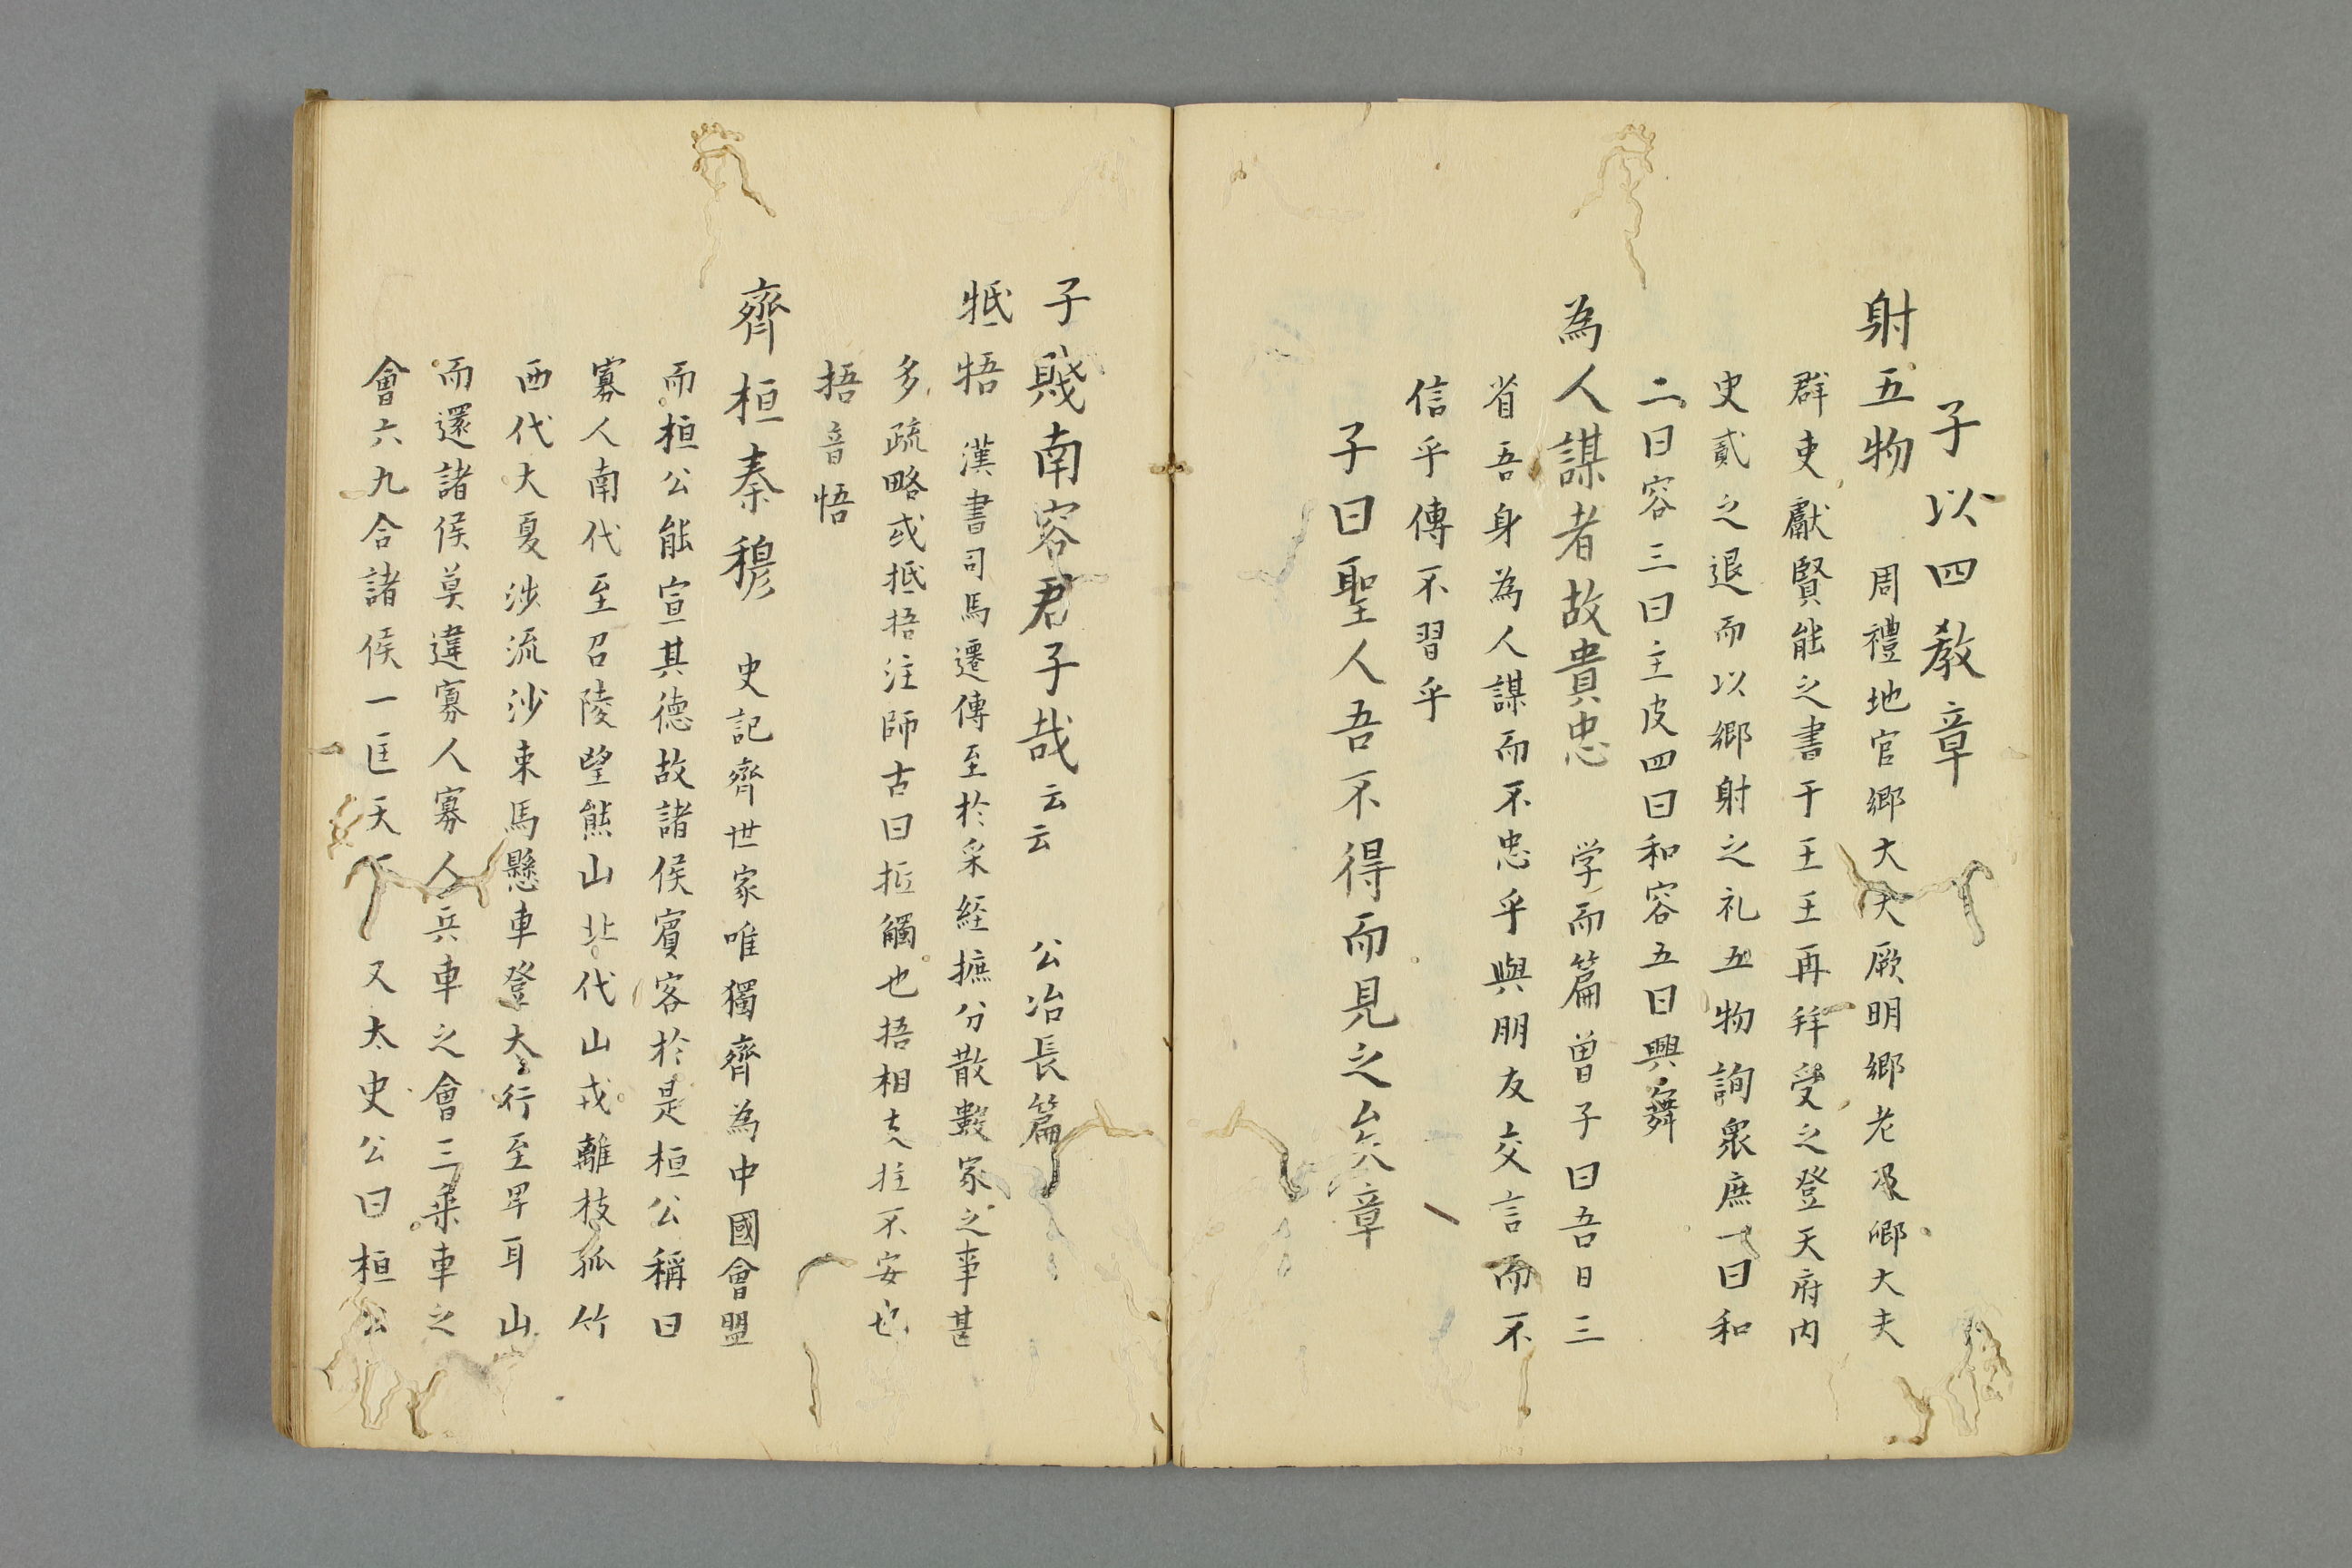 子以四教章
射五物　周禮地官鄉大夫厥明鄉老及鄉大夫
群吏獻賢能之書于王王再拜受之登天府内
史貳之退而以鄉射之礼五物詢衆庶一曰和
二曰容三曰主皮四曰和容五曰興舞
為人謀者故貴忠　学而篇曽子曰吾日三
省吾身為人謀而不忠乎與朋友交言而不
信乎傳不習乎
子曰聖人吾不得而見之矣章
子賤南容君子哉云云　公冶長篇
牴牾　漢書司馬遷傳至於采経摭分散數家之事甚
多疏略或抵捂注師古曰抵觸也捂相支拄不安也
捂音悟
齊桓秦穆　史記齊世家唯獨齊為中國會盟
而桓公能宣其德故諸侯賓客於是桓公稱曰
寡人南代至召陵望熊山北代山戎離枝孤竹
西代大夏涉流沙束馬懸車登大行至卑耳山
而還諸侯莫違寡人寡人兵車之會三乗車之
會六九合諸侯一匡天下　又太史公曰桓公